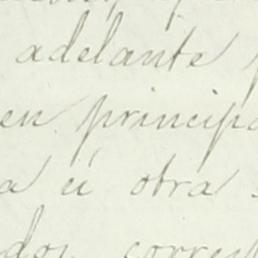 adelante
en princip
a ú otra
dos corres